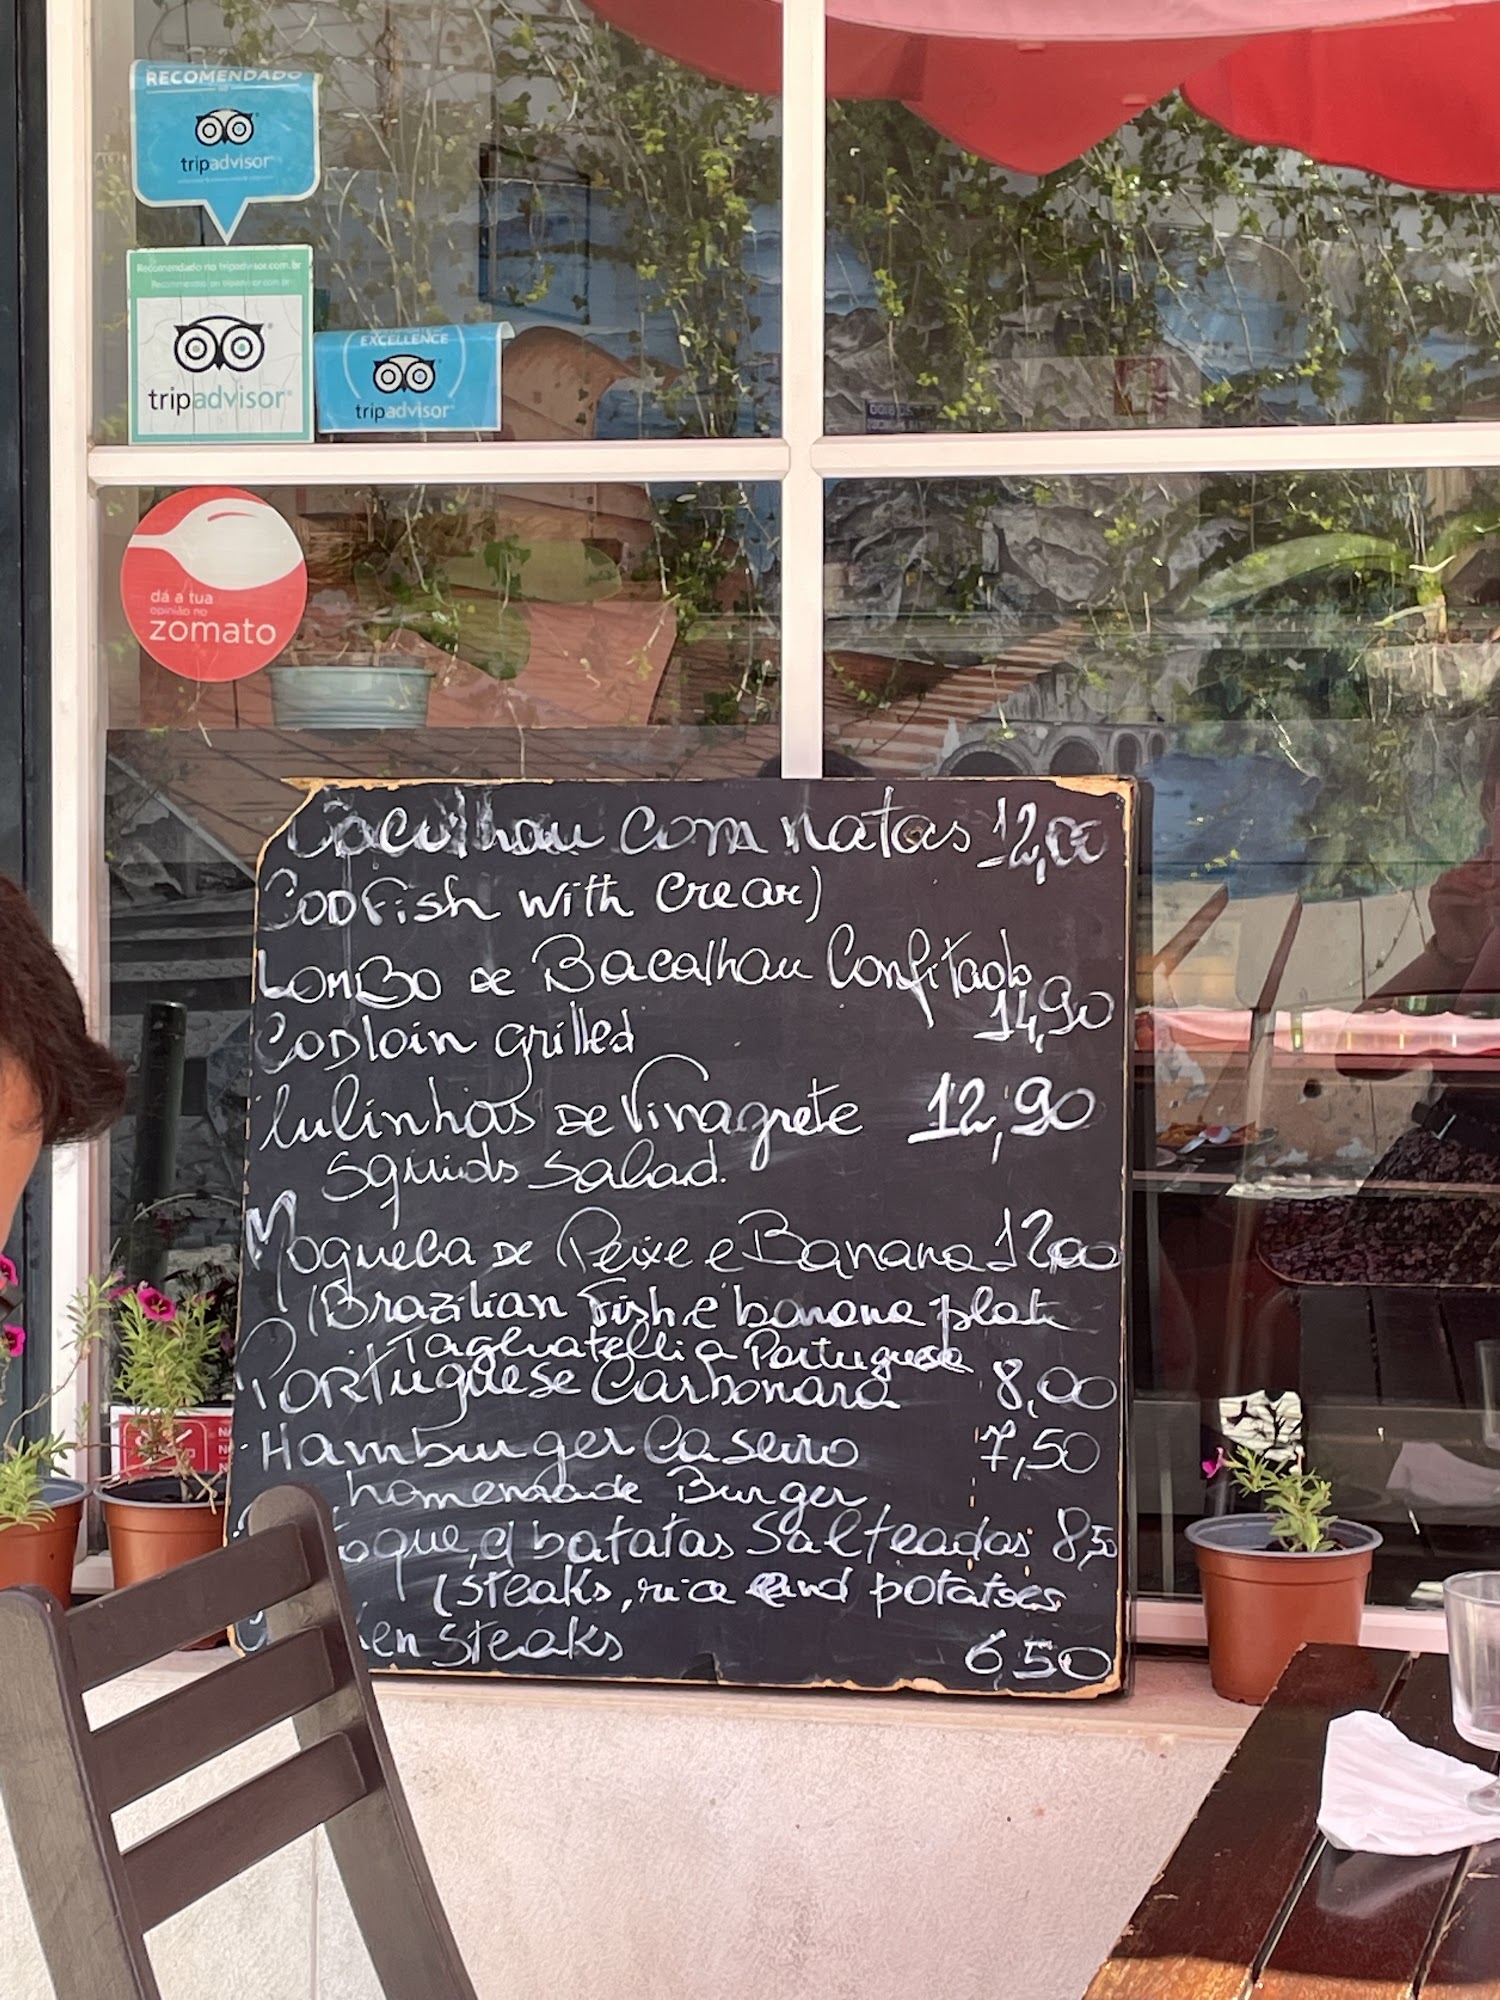 RECOMENDADO
tripadvisor
Recomendado no tripadvisor.com.br
tripadvisor
EXCELLENCE
tripadvisor
dá a tua
opinião no
zomato
Bacalhau com natas 12,00
CODFish with Cream)
LomBo de Bacalhau Confitado
14,90
CODloin grilled
Lulinhas De Vinagrete 12,90
Squids Salad.
Moqueca De Peixe e Banana 12,00
(Brazilian Fish e banana plate
Tagliatelli a Portuguesa
PORTuguese Carbonara 8,00
Hamburger Caseiro 7,50
homemade Burger
batatas Salteadas 8,50
(steaks, rice and potatoes
Steaks 6,50